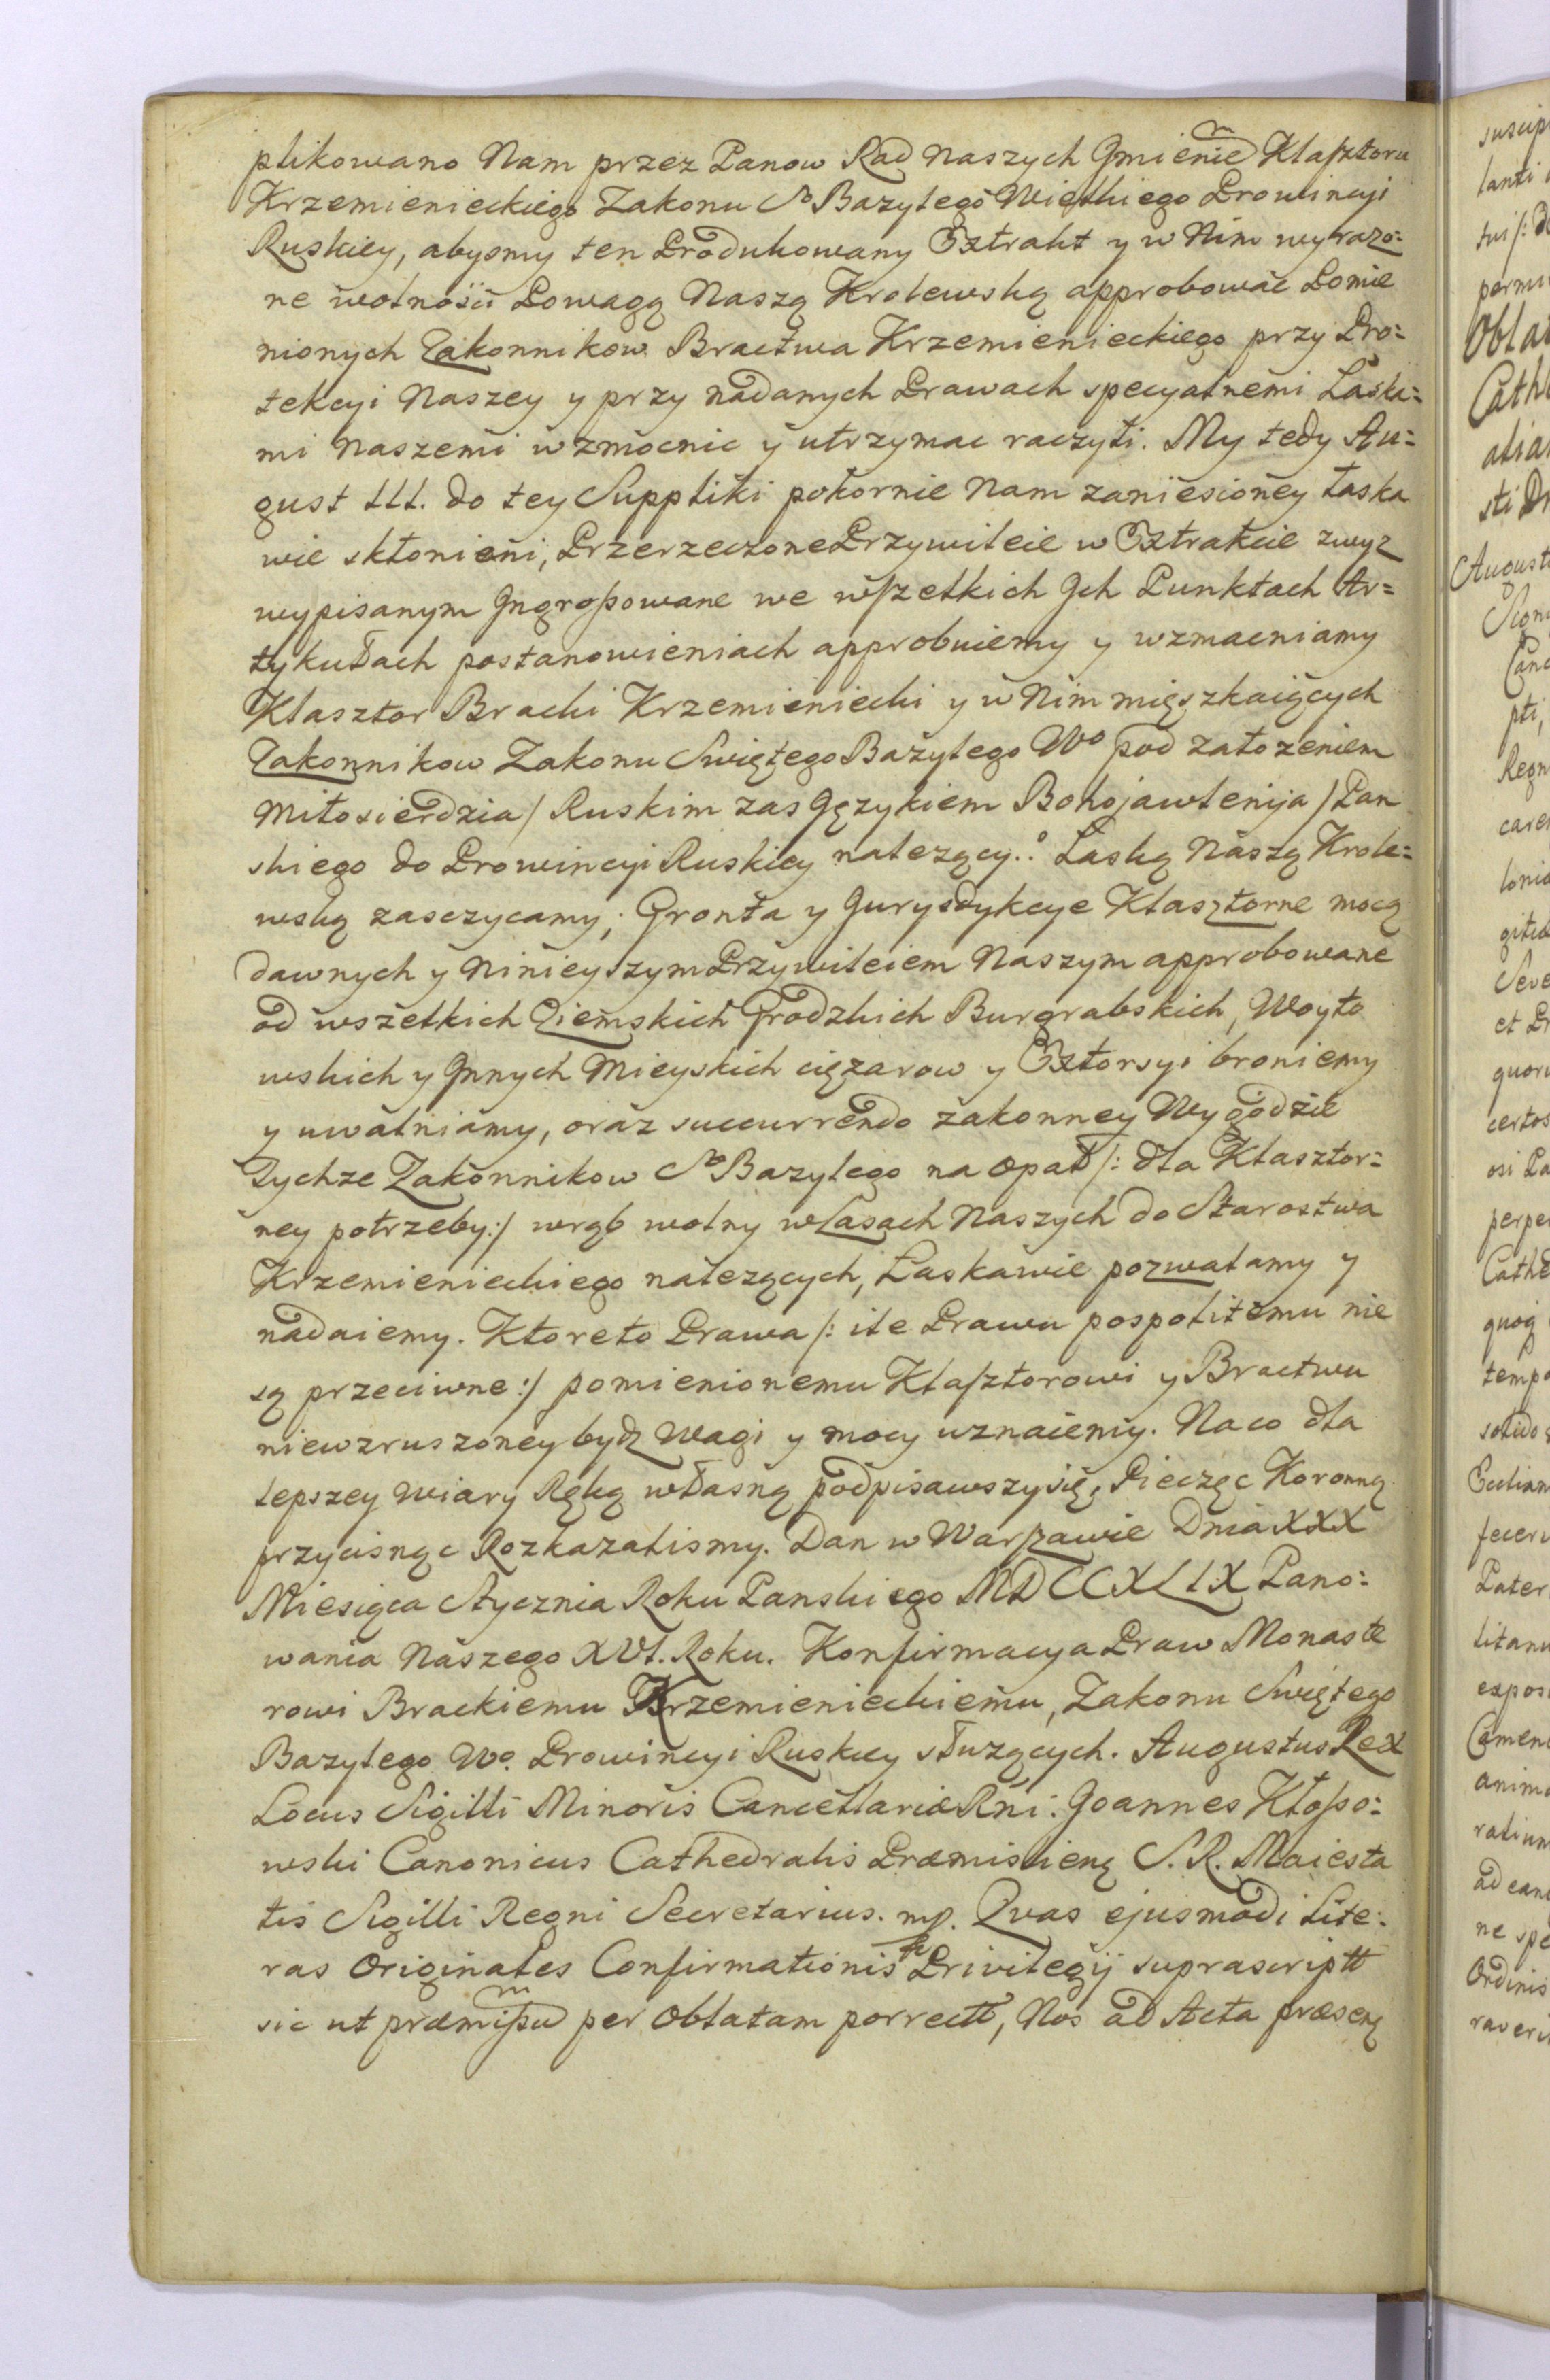 plikowano Nam przez Panow Rad Naszych Jmieniē Klasztoru
Krzemienieckiego Zakonu So Bazylego Wielkiego Prowincyi
Ruskiey, abysmy ten Produkowany Extrakt y w Nim wyrazo=
ne wolnosci Powagą Naszą Krolewską approbowac Pomie
nionych Zakonnikow Bractwa Krzemienieckiego przy Pro=
tekcyi Naszey y przy nadanych Prawach specyalnemi Łaska=
mi Naszemi wzmocnic y utrzymac raczyli. My tedy Au=
gust III. do tey Suppliki pokornie Nam zaniesioney łaska
wie skłonieni, Przerzeczone Przywileie w Extrakcie zwyz
wypisanym Jngrossowane we wszelkich Jch Punktach Ar=
tykułach postanowieniach approbuiemy y wzmacniamy
Klasztor Bracki Krzemieniecki y w Nim mięszkaiących
Zakonnikow Zakonu Swiętego Bazylego Wo pod załozeniem
Miłosierdzia / Ruskim zas Językiem Bohojawlenija / Pan
skiego do Prowincyi Ruskiey nalezący.: Łaską Naszą Krole=
wską zasczycamy; Gronta y Jurysdykcye Klasztorne mocą
dawnych y Ninieyszym Przywileiem Naszym approbowane
od wszelkich Ziemskich Grodzkich Burgrabskich, Woyto
wskich y Jnnych Mieyskich cięzarow y Extorsyi broniemy
y uwalniamy, oraz succurrendo zakonney Wygodzie
Tychze Zakonnikow So Bazylego na opał /: dla Klasztor=
ney potrzeby:/ wrąb wolny w Lasach Naszych do Starostwa
Krzemienieckiego nalezących, Łaskawie pozwalamy y
nadaiemy. Ktore to Prawa /: ile Prawu pospolitemu nie
są przeciwne :/ pomienionemu Klasztorowi y Bractwu
niewzruszoney bydz Wagi y mocy uznaiemy. Na co dla
lepszey wiary Ręką własną podpisawszy się, Pieczęc Koronną
przycisnąc Rozkazalismy. Dan w Warszawie Dnia XXX
Miesiąca Stycznia Roku Panskiego MDCCXLIX Pano=
wania Naszego XVI. Roku. Konfirmacya Praw Monaste
rowi Brackiemu Krzemienieckiemu, Zakonu Swiętego
Bazylego Wo. Prowincyi Ruskiey słuzących. Augustus Rex
Locus Sigilli Minoris Cancellariæ Rni. Joannes Kłosso=
wski Canonicus Cathedralis Præmislienȩ S. R. Maiesta
tis Sigilli Regni Secretarius. mp. Qvas ejusmodi Lite:
ras Originales Confirmationis Privilegij suprascriptt
sic ut præmissū per Oblatam porrectt, Nos ad Acta præsenȩ
suscip
lanti
tui /: d
permi
Obla
Cath
alia
sti D
August
Sign
Canc
pti,
Regn
care
lonia
gitia
Seve
et P
quor
certos
osi Pa
perpe
Cathe
quoq
temp
solido
Eccl
fecer
Pater
litanu
expos
Camen
anim
ratium
ad eand
ne spe
Ordinis
raveri